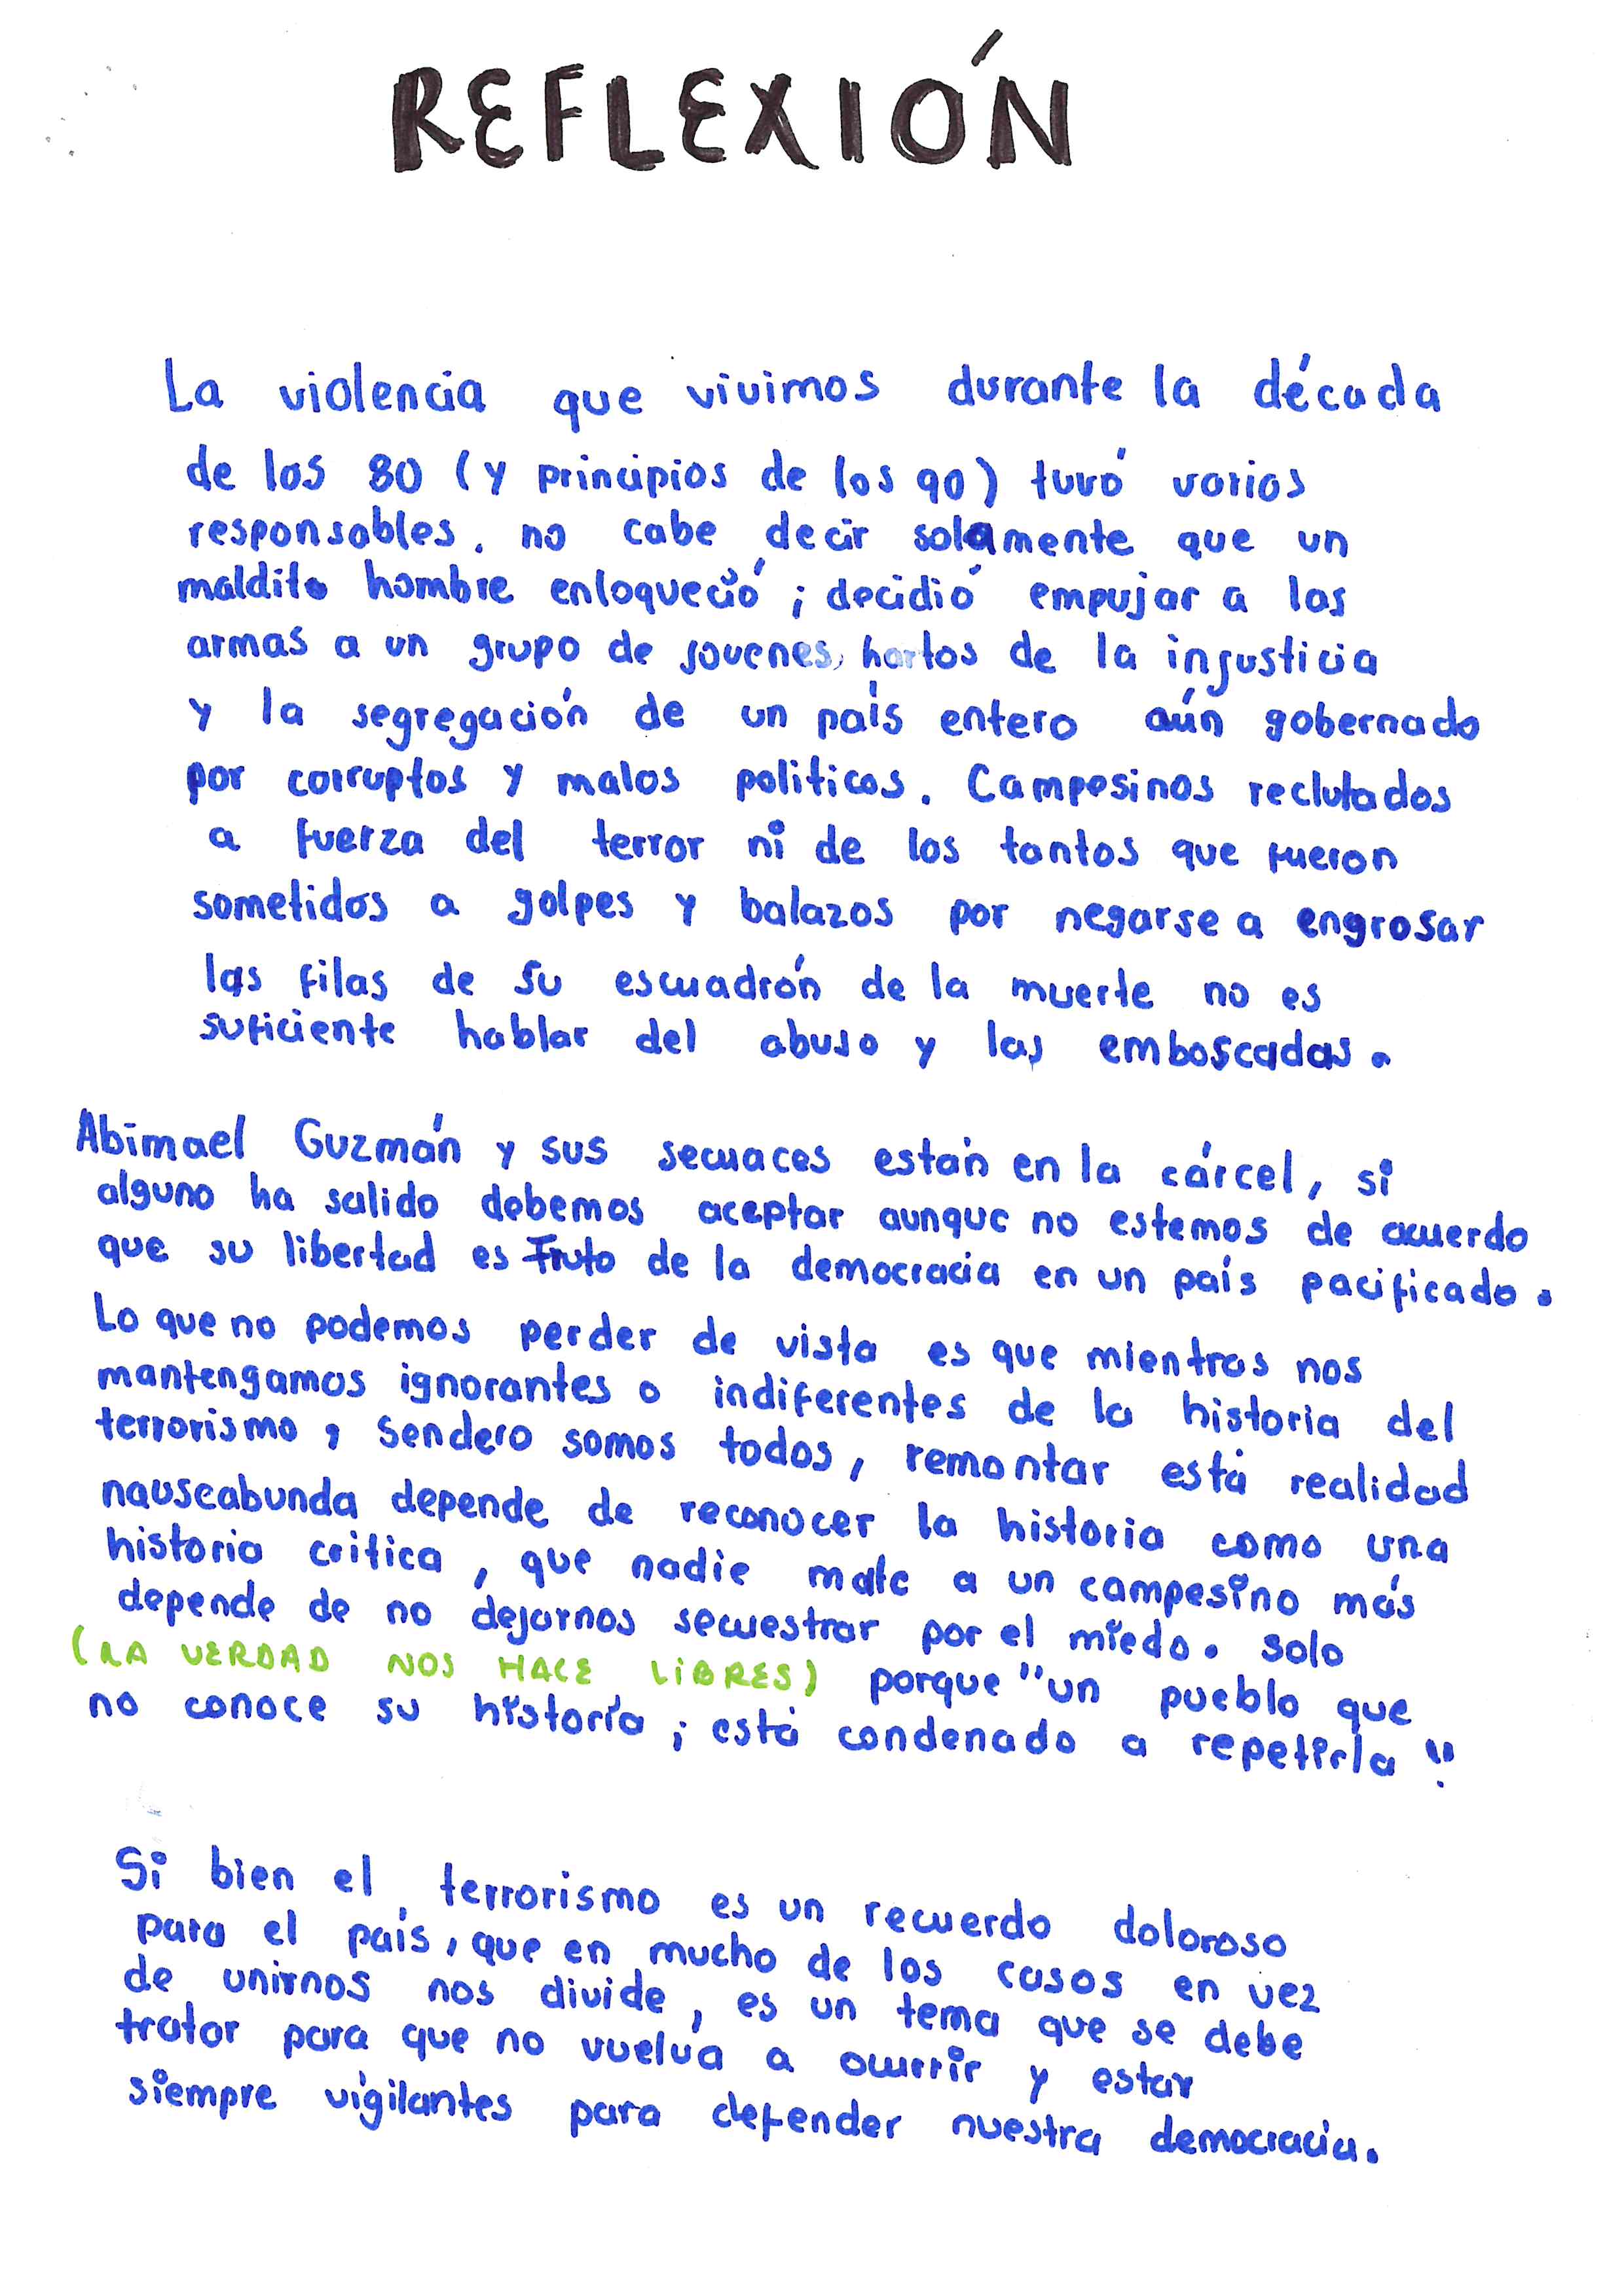 REFLEXIÓN
La violencia que vivimos durante la década
de los 80 (y principios de los 90) tuvó varios
responsables. no cabe decir solamente que un
maldito hombre enloqueció ; decidió empujar a las
armas a un grupo de jovenes, hartos de la injusticia
y la segregación de un país entero aún gobernado
por corruptos y malos politicos. Campesinos reclutados
a fuerza del terror ni de los tantos que fueron
sometidos a golpes y balazos por negarse a engrosar
las filas de su escuadrón de la muerte no es
suficiente hablar del abuso y las emboscadas.
Abimael Guzmán y sus secuaces están en la cárcel, si
alguno ha salido debemos aceptar aunque no estemos de acuerdo
que su libertad es Fruto de la democracia en un país pacificado.
Lo que no podemos perder de vista es que mientras nos
mantengamos ignorantes o indiferentes de la historia del
terrorismo, Sendero somos todos, remontar está realidad
nauseabunda depende de reconocer la historia como una
historia critica, que nadie mate a un campesino más
depende de no dejarnos secuestrar por el miedo. solo
(LA VERDAD NOS HACE LIBRES) porque "un pueblo que
no conoce su historia ; está condenado a repetirla".
Si bien el terrorismo es un recuerdo doloroso
para el país, que en mucho de los casos en vez
de unirnos nos divide, es un tema que se debe
tratar para que no vuelva a ocurrir y estar
siempre vigilantes para defender nuestra democracia.